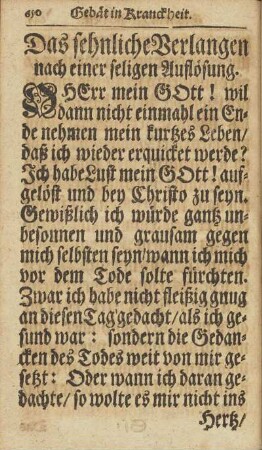 650 Gebät in Kranckheit.
Das sehnliche Verlangen
nach einer seligen Auflösung.
O HErr mein GOtt! wil
dann nicht einmahl ein En-
de nehmen mein kurtzes Leben/
daß ich wieder erquicket werde?
Ich habe Lust mein GOtt! auf-
gelöst und bey Christo zu seyn.
Gewißlich ich würde gantz un-
besonnen und grausam gegen
mich selbsten seyn/wann ich mich
vor dem Tode solte fürchten.
Zwar ich habe nicht fleißig gnug
an diesen Tag gedacht/als ich ge-
sund war: sondern die Gedan-
cken des Todes weit von mir ge-
setzt: Oder wann ich daran ge-
dachte/ so wolte es mir nicht ins
Hertz/